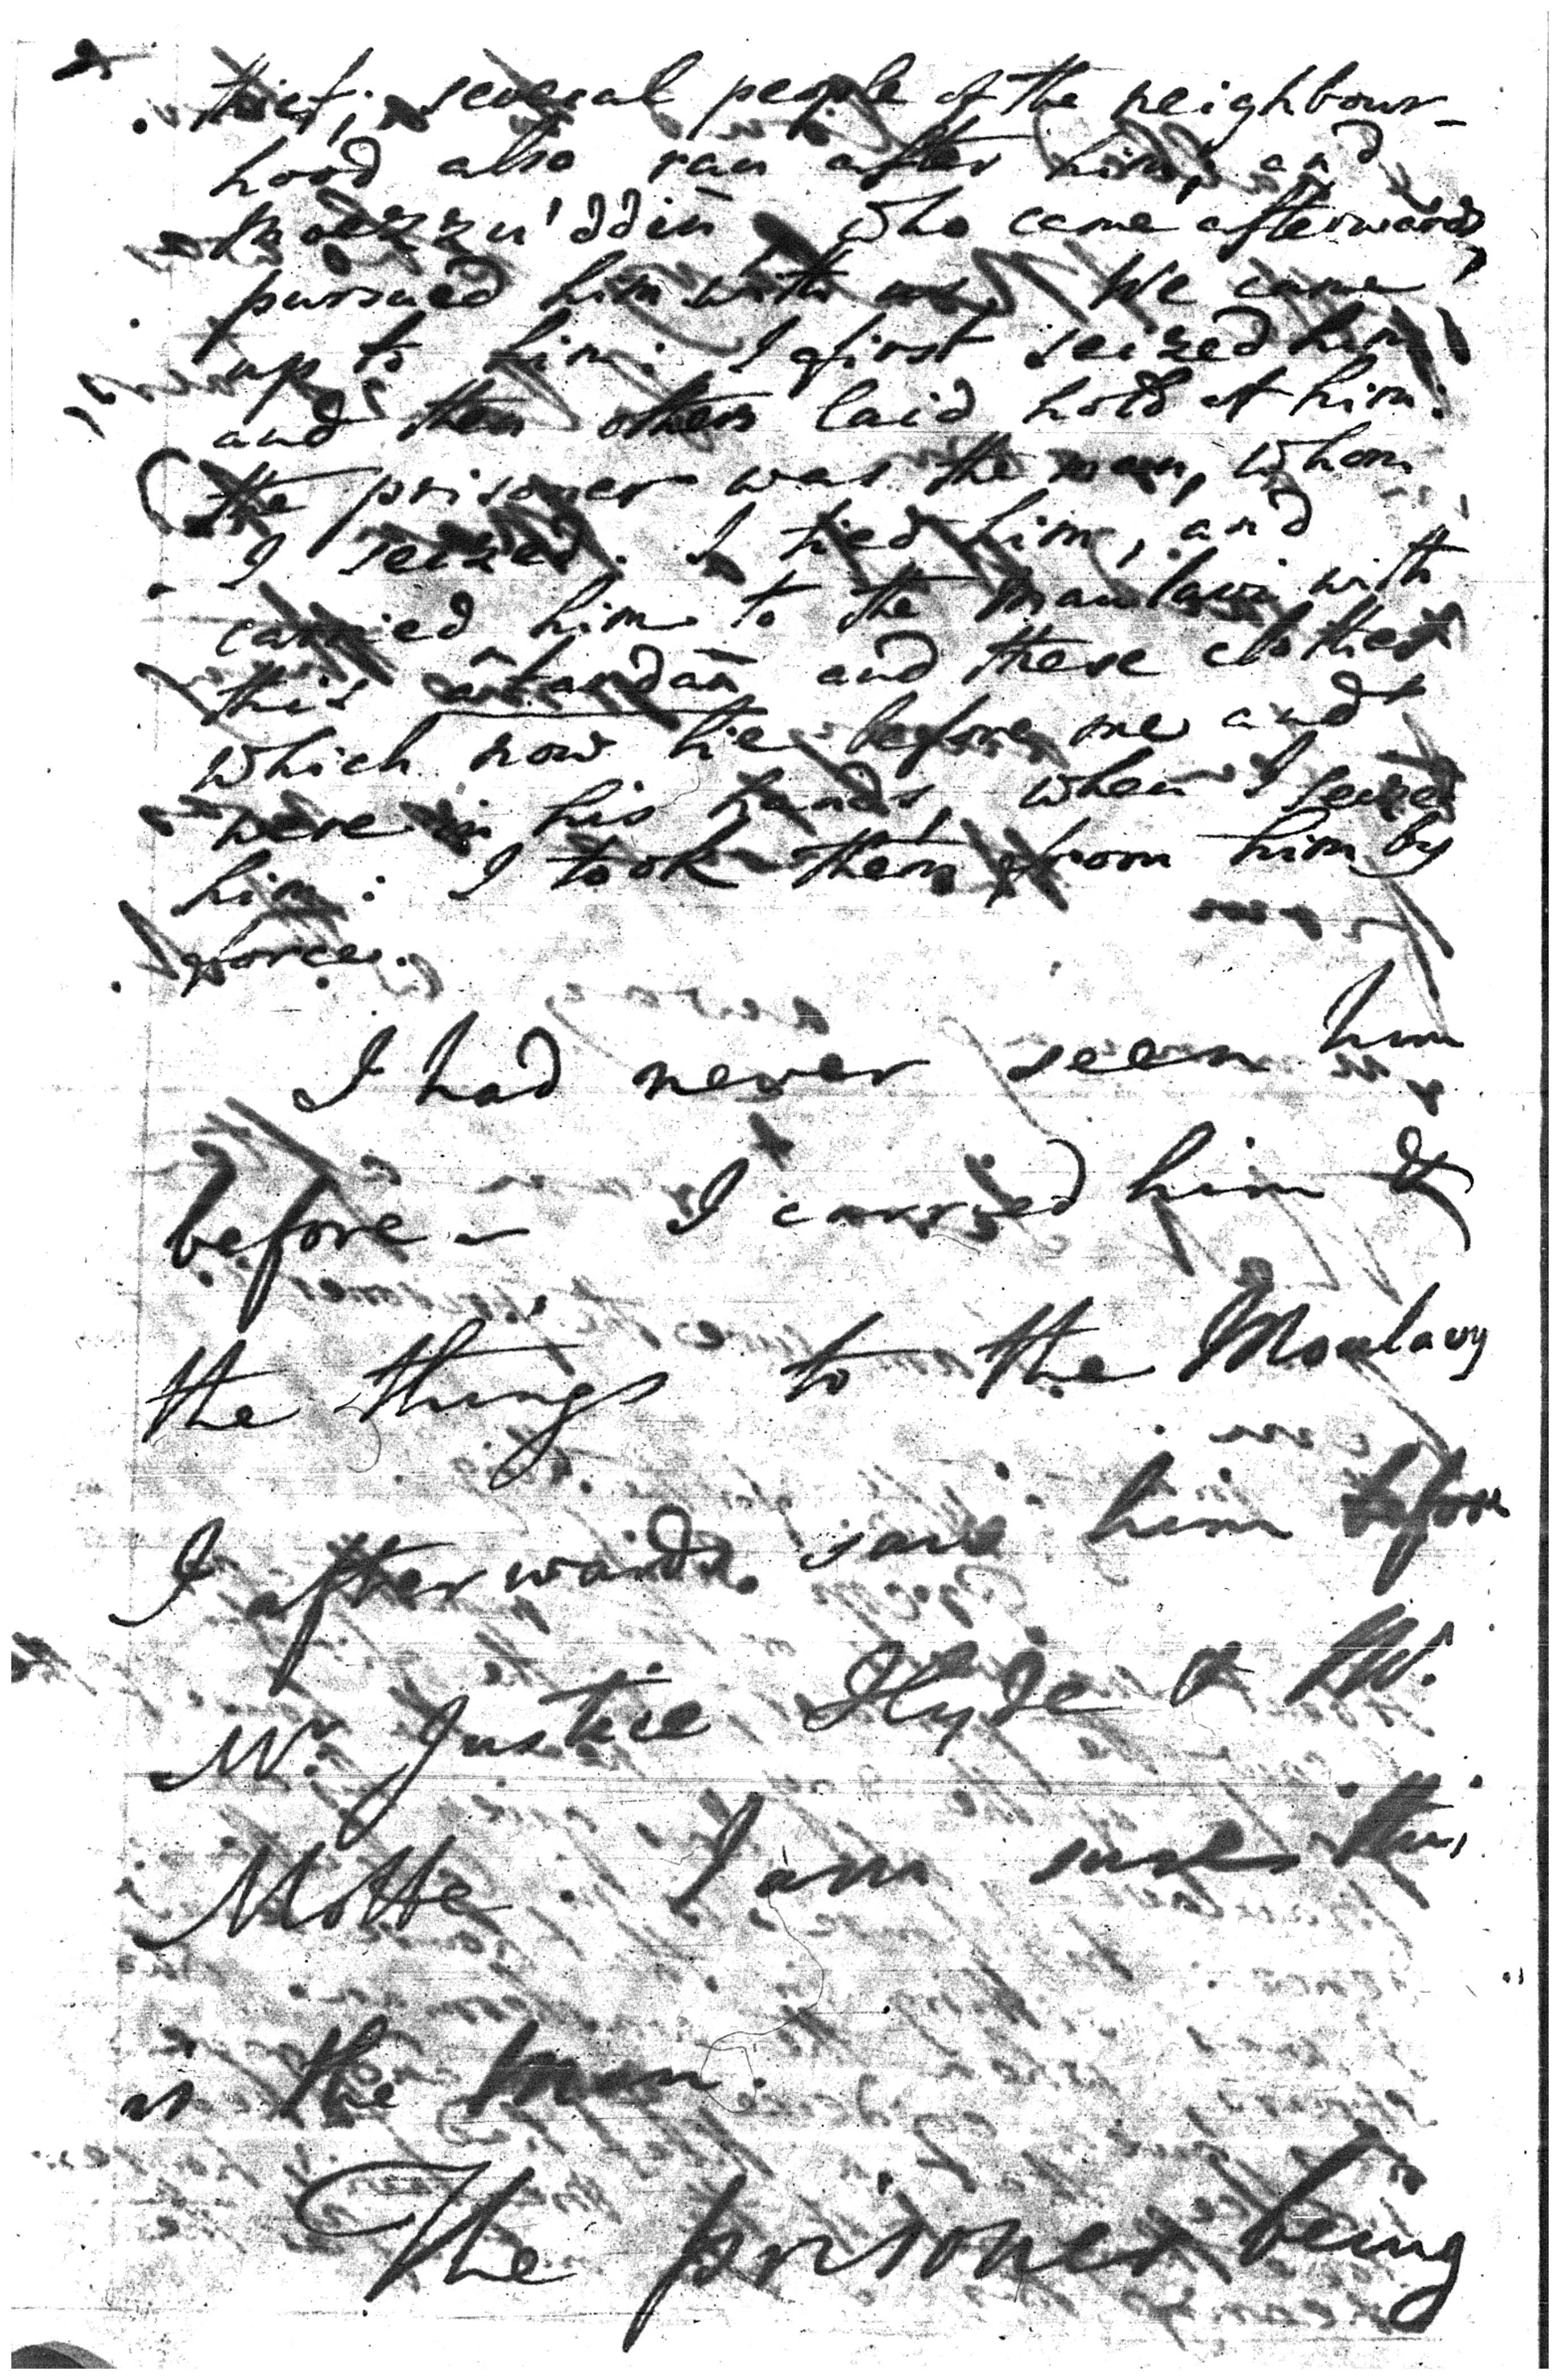 thief; several people of the neighbour-
hood also ran after him, and
Moezzu'ddin who came afterwards,
pursued him with us. We came
up to him: I first seized him
and then others laid hold of him:
the prisoner was the man, whom
I seized. I tied him, and
carried him to the Maulavi with
this and these clothes
which now lie before me and
were in his hands, when I seized
him: I took them from him by
force.
I had never seen him
before - I carried him &
the things to the Moulavy
I afterwards saw him before
Mr Justice Hyde & Mr.
Motte. I am sure this
is the man.
The prisoner being